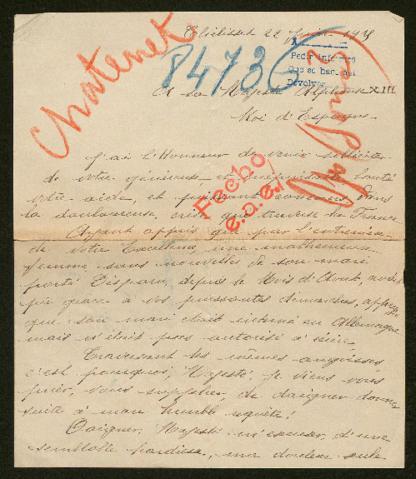 Chatenet
84736
22 Juin 19
Pedir informes
A Sa Majesté Alphonse XIII
Roi d'Espagne
J'ai l'Honneur de venir solliciter
de votre généreuse et
votre aide, et puissant concours dans
la douloureuse crise que traverse la France.
Fecho
Ayant appris que par l'entremise
de Votre Excellence, une malheureuse
femme sans nouvelles de son mari
porté Disparu, depuis le Mois d'Août,
par grâce à vos puissantes démarches,
que son mari était interné en Allemagne
mais n'était pas autorisé à écrire.
Traversant les mêmes angoisses
c'est pourquoi, Majesté, je viens vous
prier, vous supplier, de daigner donner
suite à mon humble requête!
Daignez, Majesté m'excuser, d'une
semblable hardiesse, ma douleur seule